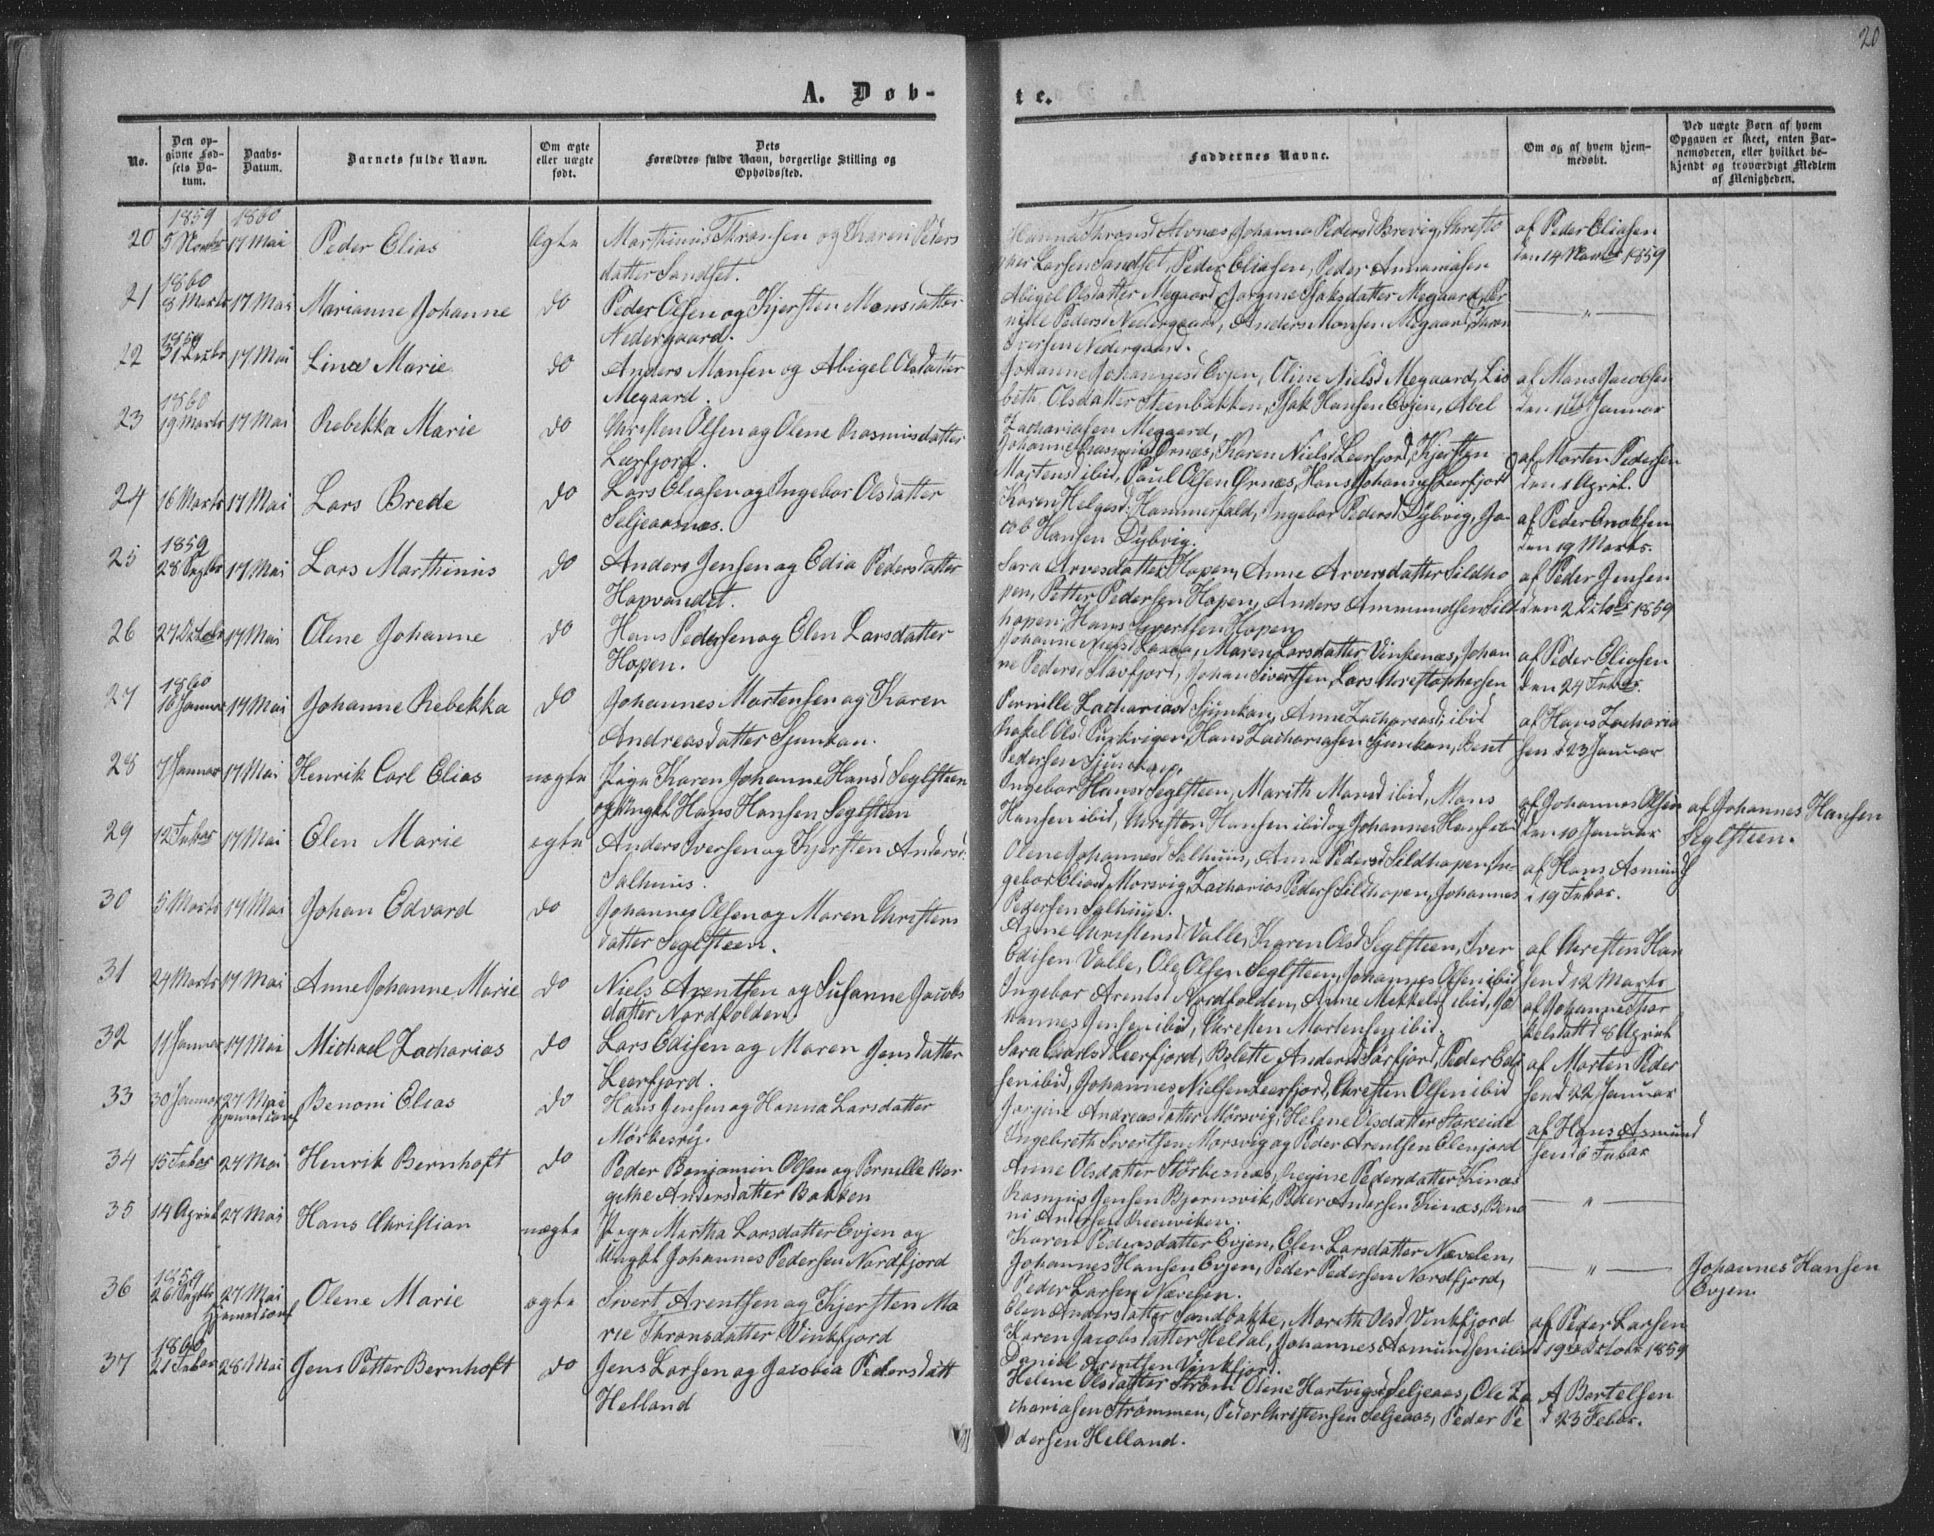 20
A. Døb-
te.
No.
Den op-
givne Fød-
sels Da-
tum.
Daabs-
Datum.
Barnets fulde Navn.
Om ægte
eller uægte
født.
Dets
Forældres fulde Navn, borgerlige Stilling og
Opholdssted.
Faddernes Navne.
Om og af hvem hjem-
medøbt.
Ved uægte Børn af hvem
Opgaven er skeet, enten Bar-
nemoderen, eller hvilket be-
kjendt og troværdigt Medlem
af Menigheden.
1859 1860
20 5 Novbr 17 Mai Peder Elias Ægte Marthinus Thronsen og Karen Peders
datter Sandset.
Hanna Throns Alvnæs, Johanna Pedersd Brevig, Christo
pher Larsen Sandset, Peder Eliasen, Peder Annaniasen
af Peder Eliasen
den 14 Novbr 1859
1860
21 8 Marts 17 Mai Marianne Johanne do Peder Olsen og Kjersten Monsdatter
Nedergaard.
Abigel Olsdatter Megaard, Jørgine Isaksdatter Megaard, Per
nille Pedersd Nedergaard, Anders Monsen Megaard, Thron
Iversen Nedergaard.
— " —
1859
22 31 Decbr 17 Mai Lina Marie do Anders Monsen og Abigel Olsdatter
Megaard.
Johanne Johannesd Evjen, Oline Nielsd Megaard, Lis
beth Olsdatter Steenbakken, Isak Hansen Evjen, Abel
Zachariasen Megaard,
af Mons Jacobsen
den 16 Januar
1860
23 19 Marts 17 Mai Rebekka Marie do Christen Olsen og Olene Rasmusdatter
Leerfjord.
Johanne Rasmusd Ørnæs, Karen Nielsd Leerfjord, Kjersten
Mortensd ibid, Paul Olsen Ørnæs, Hans Johannes Leerfjord
af Morten Pedersen
den 1 April.
24 16 Marts 17 Mai Lars Brede do Lars Eliasen og Ingebor Olsdatter
Seljeaasnæs.
Karen Helgesd: Hammerfald, Ingebor Pedersd Dybvig, Ja-
cob Hansen Dybvig.
af Peder Enoksen
den 19 Marts.
1859
25 28 Septbr 17 Mai Lars Marthinus do Anders Jensen og Edia Pedersdatter
Hopvandet.
Sara Arvesdatter Hopen, Anne Arversdatter Sildho
pen, Petter Pedersen Hopen, Anders Ammundsen Sild
hopen, Hans Sivertsen Hopen
af Peder Jensen
den 2 Octobr 1859
26 27 Octobr 17 Mai Olene Johanne do Hans Pedersen og Elen Larsdatter
Hopen.
Johanne Nielsd, Maren Larsdatter Vinkenæs, Johan
ne Pedersd Mavfjord, Johan Sivertsen, Lars Christophersen
af Peder Eliasen
den 24 Febr.
1860
27 16 Januar 17 Mai Johanne Rebekka do Johannes Mortensen og Karen
Andreasdatter Sjunkan.
Pernille Zachariasd Sjunkan, Anne Zachariasd; ibid
Rakel Olsd, Hans Zachariasen Sjunkan, Bent
Pedersen Sjunkan.
af Hans Zacharia
sen d 23 Januar
28 7 Januar 17 Mai Henrik Carl Elias uægte Pige Karen Johanne Hansd Seglsteen
og Ungkl Hans Hansen Seglsteen
Ingebor Hansd Seglsteen, Marith Monsd ibid, Mons
Hansen ibid, Christen Hansen ibid og Johannes Hansen ibid
af Johannes Olsen
den 10 Januar
af Johannes Hansen
Seglsteen.
29 12 Febar 17 Mai Elen Marie egte Anders Iversen og Kjersten Andersd:
Salhuus.
Olene Johannesd Salhuus, Anne Pedersd Sildhopen, In
gebor Eliasd Morsvig, Zacharias Peders Sildhopen, Johannes
Pedersen Salhuus.
af Hans Asmund
d 19 Febar.
30 5 Marts 17 Mai Johan Edvard do Johannes Olsen og Maren Christens
datter Seglsteen.
Anne Christensd Valle, Karen Olsd Seglsteen, Iver
Edisen Valle, Ole Olsen Seglsteen, Johannes Olsen ibid
af Christen Han
sen d 12 Marts
31 27 Marts 17 Mai Anne Johanne Marie do Niels Arentsen og Susanne Jacobs
datter Nordfolden.
Ingebor Arentsd Nordfolden, Anne Mekkelsd ibid, Jo
hannes Jensen ibid, Christen Mortensen ibid.
af Johannes Thor
kelsen d 8 April
32 11 Januar 17 Mai Michael Zacharias do Lars Edisen og Maren Jensdatter
Leerfjord.
Sara Carlsd Leerfjord, Bolette Andersd Sørfjord, Peder Edi
sen ibid, Johannes Nielsen Leerfjord, Christen Olsen ibid
af Morten Peder
sen d 22 Januar
33 30 Januar 27 Mai
hjemed conf
Benoni Elias do Hans Jensen og Hanna Larsdatter
Mørbesry.
Jørgine Andreasdatter Mørsvig, Helene Olsdatter Storeide
Ingebreth Sivertsen Morsvig og Peder Arentsen Elenjord
af Hans Asmund
sen d 6 Febar
34 15 Febar 27 Mai Henrik Bernhoft do Peder Benjamin Olsen og Pernille Bor
gethe Andersdatter Bakken
Anne Olsdatter Størbesnæs, Regine Pedersdatter Kinæs
Rasmus Jensen Bjørnsvik, Peter Andersen Kinæs, Beno
ni Andersen Reenviken.
— " —
35 14 April 27 Mai Hans Christian uægte Pige Martha Larsdatter Evjen og
Ungkl Johannes Pedersen Nordfjord
Karen Pedersdatter Evjen, Elen Larsdatter Nævelen,
Johannes Hansen Evjen, Peder Pedersen Nordfjord,
Peder Larsen Nævelen.
— " —
Johannes Hansen
Evjen
1859
36 26 Septbr 27 Mai
hjemed conf
Olene Marie ægte Sivert Arentsen og Kjersten Ma
rie Thronsdatter Vinkfjord
Elen Andersdatter Sandbakke, Marith Olsd Vinkfjord
Karen Jacobsdatter Heldal, Johannes Asmundsen ibid
Daniel Arentsen Vinkfjord.
af Peder Larsen
d 19de Octobr 1859
1860
37 21 Febar 28 Mai Jens Petter Bernhoft do Jens Larsen og Jacobia Pedersdatt
Helland
Helene Olsdatter Strøm, Olene Hartvigsd Seljeaas, Ole Za
chariasen Strømmen, Peder Christensen Seljeaas, Peder Pe
dersen Helland.
A Bertelsen
d 23 Febar.